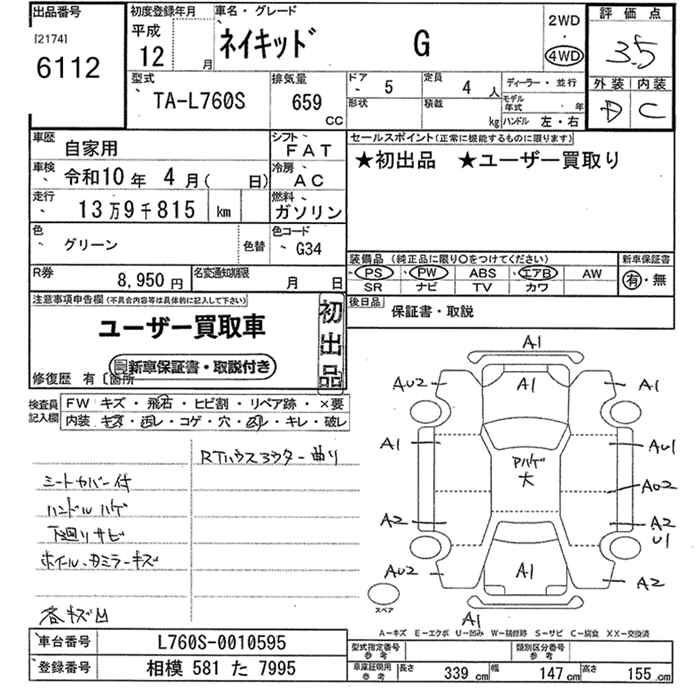 出品番号
[2174]
6112
初度登録年月
平成
12 月
車名・グレード
ネイキッド G
2WD
・
4WD
評価点
3.5
外装 内装
D C
型式
TA-L760S
排気量
659
CC
ドア
5
定員
4 人
形状
積載
kg
ディーラー・並行
モデル
年式 ・ 年
ハンドル 左・右
車歴
自家用
シフト
FAT
車検
令和10年 4月( 日)
冷房
AC
走行
13万9千815 km
燃料
ガソリン
色
グリーン
色替
色コード
G34
R券
8,950円
名変通知期限
月 日
セールスポイント(正常に機能するものに限ります)
★初出品 ★ユーザー買取り
装備品 (純正品に限り○をつけてください)
PS PW ABS エアB AW
SR ナビ TV カワ
新車保証書
有・無
後日品
保証書・取説
注意事項申告欄(不具合内容等は具体的に記入して下さい)
ユーザー買取車
初出品
新車保証書・取説付き
修復歴 有 〔箇所
検査員
記入欄
FW キズ・飛石・ヒビ割・リペア跡・×要
内装 キズ・汚レ・コゲ・穴・凹ル・キレ・破レ
RTハウスアウター曲り
シートカバー付
ハンドルハゲ
下廻りサビ
ホイール、カミラーキズ
各キズ凹
A1
AU2
A1
A1
A1
AU1
アハゲ
大
AU2
A2
A2
U1
AU2
A1
A2
A1
スペア
A-キズ E-エクボ U-凹み W-補修跡 S-サビ C-腐食 XX-交換済
車台番号
L760S-0010595
登録番号
相模 581 た 7995
型式指定番号
参考
類別区分番号
参考
車庫証明用
参考
長さ 339 cm 幅 147 cm 高さ 155 cm